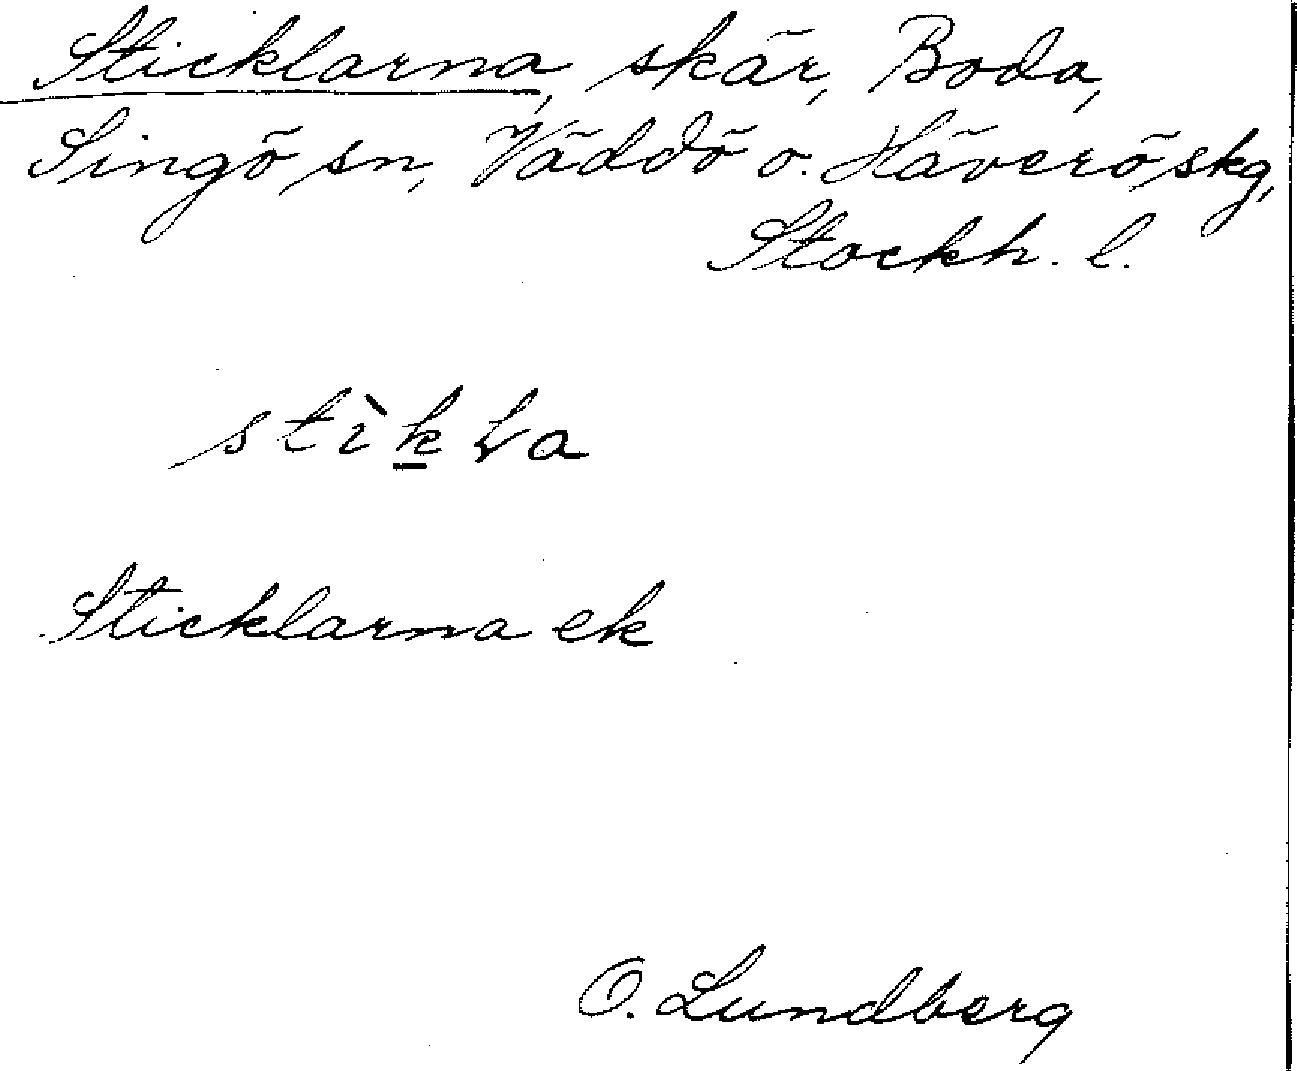 Sticklarna, skär, Boda,
Singö sn, Väddö o. Häverö skg,
Stockh. l.
stìk̲ɫa
Sticklarna ek
O. Lundberg